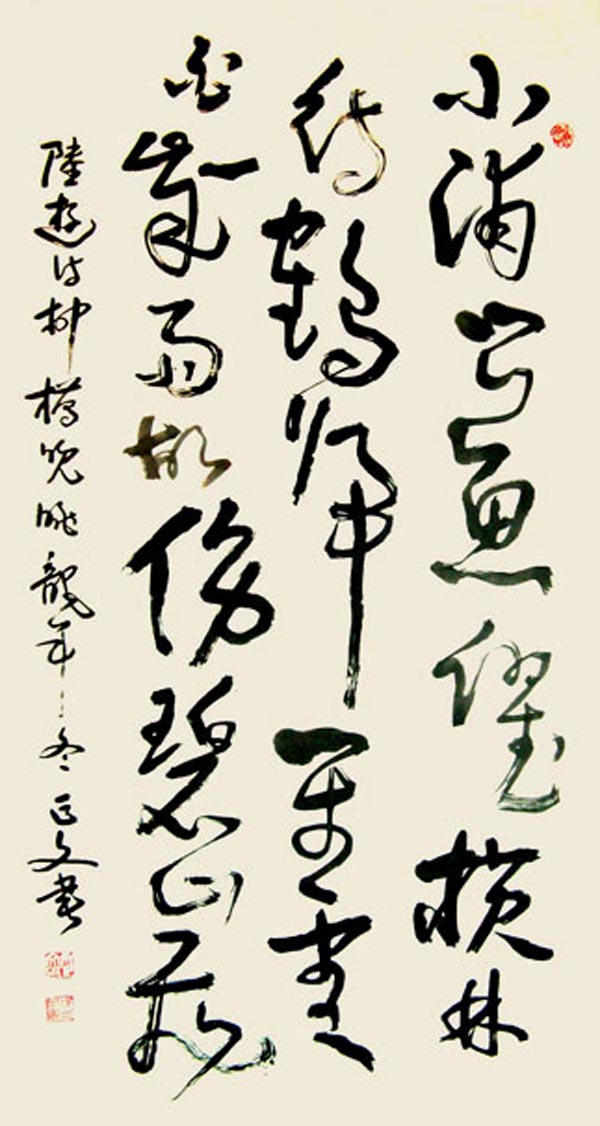 小浦聞魚躍橫林
待鶴歸閑雲
不成雨故傍碧山飛
陸遊詩柳橋晚眺龍年之冬正文書